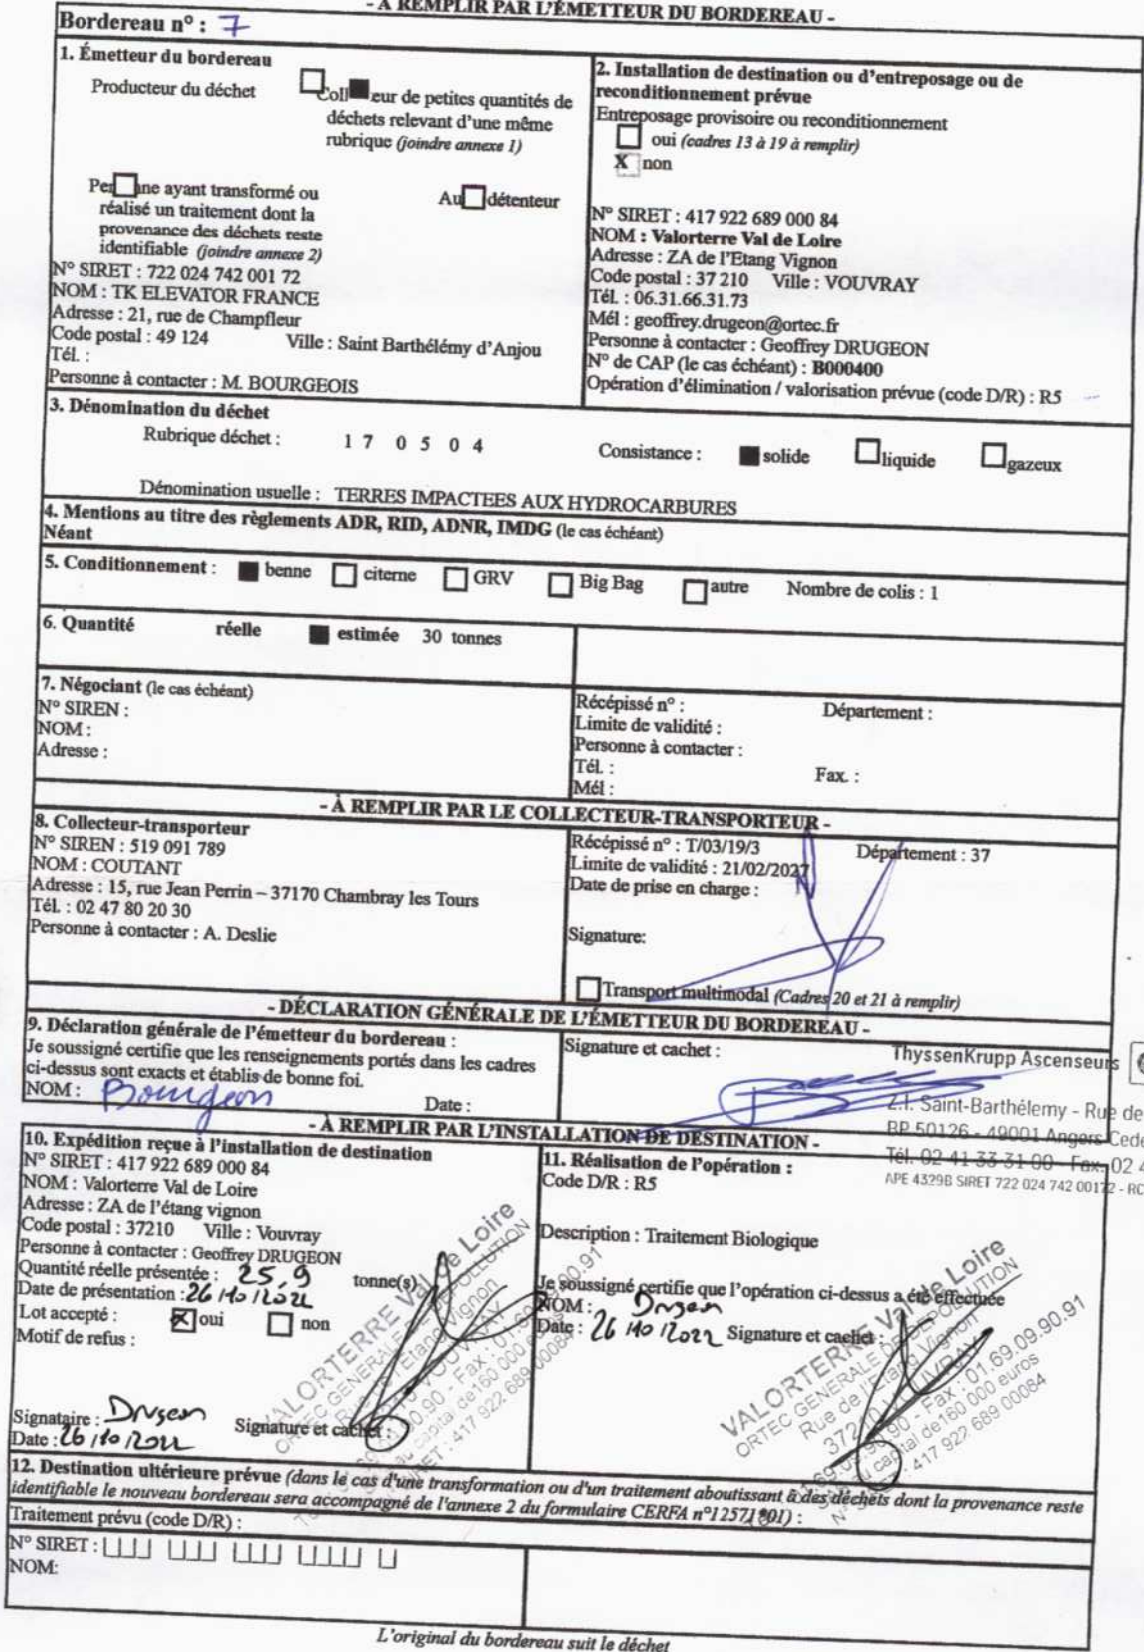 - À REMPLIR PAR L'ÉMETTEUR DU BORDEREAU -
Bordereau n° : 7
1. Émetteur du bordereau
Producteur du déchet
Coll eur de petites quantités de
déchets relevant d'une même
rubrique (joindre annexe 1)
Per ne ayant transformé ou
réalisé un traitement dont la
provenance des déchets reste
identifiable (joindre annexe 2)
Au détenteur
N° SIRET : 722 024 742 001 72
NOM : TK ELEVATOR FRANCE
Adresse : 21, rue de Champfleur
Code postal : 49 124 Ville : Saint Barthélémy d'Anjou
Tél. :
Personne à contacter : M. BOURGEOIS
2. Installation de destination ou d'entreposage ou de
reconditionnement prévue
Entreposage provisoire ou reconditionnement
oui (cadres 13 à 19 à remplir)
X non
N° SIRET : 417 922 689 000 84
NOM : Valorterre Val de Loire
Adresse : ZA de l'Etang Vignon
Code postal : 37 210 Ville : VOUVRAY
Tél. : 06.31.66.31.73
Mél : geoffrey.drugeon@ortec.fr
Personne à contacter : Geoffrey DRUGEON
N° de CAP (le cas échéant) : B000400
Opération d'élimination / valorisation prévue (code D/R) : R5
3. Dénomination du déchet
Rubrique déchet : 1 7 0 5 0 4 Consistance : solide liquide gazeux
Dénomination usuelle : TERRES IMPACTEES AUX HYDROCARBURES
4. Mentions au titre des règlements ADR, RID, ADNR, IMDG (le cas échéant)
Néant
5. Conditionnement : benne citerne GRV Big Bag autre Nombre de colis : 1
6. Quantité réelle estimée 30 tonnes
7. Négociant (le cas échéant)
N° SIREN :
NOM :
Adresse :
Récépissé n° : Département :
Limite de validité :
Personne à contacter :
Tél. : Fax. :
Mél :
- À REMPLIR PAR LE COLLECTEUR-TRANSPORTEUR -
8. Collecteur-transporteur
N° SIREN : 519 091 789
NOM : COUTANT
Adresse : 15, rue Jean Perrin – 37170 Chambray les Tours
Tél. : 02 47 80 20 30
Personne à contacter : A. Deslie
Récépissé n° : T/03/19/3 Département : 37
Limite de validité : 21/02/2027
Date de prise en charge :
Signature:
Transport multimodal (Cadres 20 et 21 à remplir)
- DÉCLARATION GÉNÉRALE DE L'ÉMETTEUR DU BORDEREAU -
9. Déclaration générale de l'émetteur du bordereau :
Je soussigné certifie que les renseignements portés dans les cadres
ci-dessus sont exacts et établis de bonne foi.
NOM : Bourgeois Date :
Signature et cachet :
ThyssenKrupp Ascenseurs
Z.I. Saint-Barthélemy - Rue de
BP 50126 - 49001 Angers Cede
Tél. 02 41 33 31 00 - Fax. 02 4
APE 4329B SIRET 722 024 742 00172 - RC
- À REMPLIR PAR L'INSTALLATION DE DESTINATION -
10. Expédition reçue à l'installation de destination
N° SIRET : 417 922 689 000 84
NOM : Valorterre Val de Loire
Adresse : ZA de l'étang vignon
Code postal : 37210 Ville : Vouvray
Personne à contacter : Geoffrey DRUGEON
Quantité réelle présentée : 25,9 tonne(s)
Date de présentation : 26/10/2022
Lot accepté : oui non
Motif de refus :
Signataire : Drugeon Signature et cachet :
Date : 26/10/2022
11. Réalisation de l'opération :
Code D/R : R5
Description : Traitement Biologique
Je soussigné certifie que l'opération ci-dessus a été effectuée
NOM : Drugeon
Date : 26/10/2022 Signature et cachet :
VALORTERRE Val de Loire
ORTEC GENERALE DE DEPOLLUTION
Rue de l'Etang Vignon
37210 VOUVRAY
01.69.09.90.90 - Fax : 01.69.09.90.91
capital de 160 000 euros
417 922 689 00084
12. Destination ultérieure prévue (dans le cas d'une transformation ou d'un traitement aboutissant à des déchets dont la provenance reste
identifiable le nouveau bordereau sera accompagné de l'annexe 2 du formulaire CERFA n°12571*01) :
Traitement prévu (code D/R) :
N° SIRET :
NOM:
L'original du bordereau suit le déchet